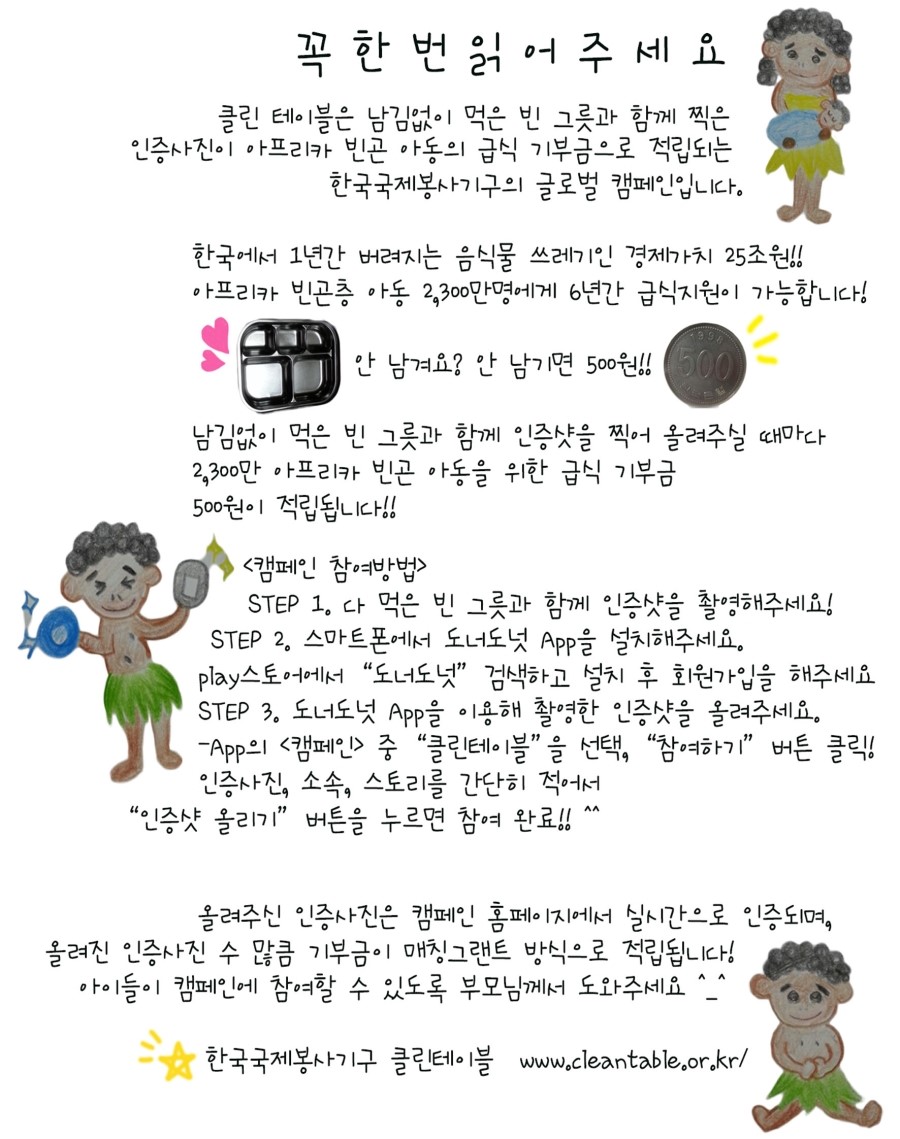 꼭 한 번 읽어 주 세 요
클린 테이블은 남김없이 먹은 빈 그릇과 함께 찍은
인증사진이 아프리카 빈곤 아동의 급식 기부금으로 적립되는
한국국제봉사기구의 글로벌 캠페인입니다.
한국에서 1년간 버려지는 음식물 쓰레기인 경제가치 25조원!!
아프리카 빈곤층 아동 2,300만명에게 6년간 급식지원이 가능합니다!
안 남겨요? 안 남기면 500원!!
1998
500
남김없이 먹은 빈 그릇과 함께 인증샷을 찍어 올려주실 때마다
2,300만 아프리카 빈곤 아동을 위한 급식 기부금
500원이 적립됩니다!!
<캠페인 참여방법>
STEP 1. 다 먹은 빈 그릇과 함께 인증샷을 촬영해주세요!
STEP 2. 스마트폰에서 도너도넛 App을 설치해주세요.
play스토어에서 “도너도넛” 검색하고 설치 후 회원가입을 해주세요
STEP 3. 도너도넛 App을 이용해 촬영한 인증샷을 올려주세요.
-App의 <캠페인> 중 “클린테이블”을 선택, “참여하기” 버튼 클릭!
인증사진, 소속, 스토리를 간단히 적어서
“인증샷 올리기” 버튼을 누르면 참여 완료!! ^^
올려주신 인증사진은 캠페인 홈페이지에서 실시간으로 인증되며,
올려진 인증사진 수 많큼 기부금이 매칭그랜트 방식으로 적립됩니다!
아이들이 캠페인에 참여할 수 있도록 부모님께서 도와주세요 ^_^
한국국제봉사기구 클린테이블 www.cleantable.or.kr/